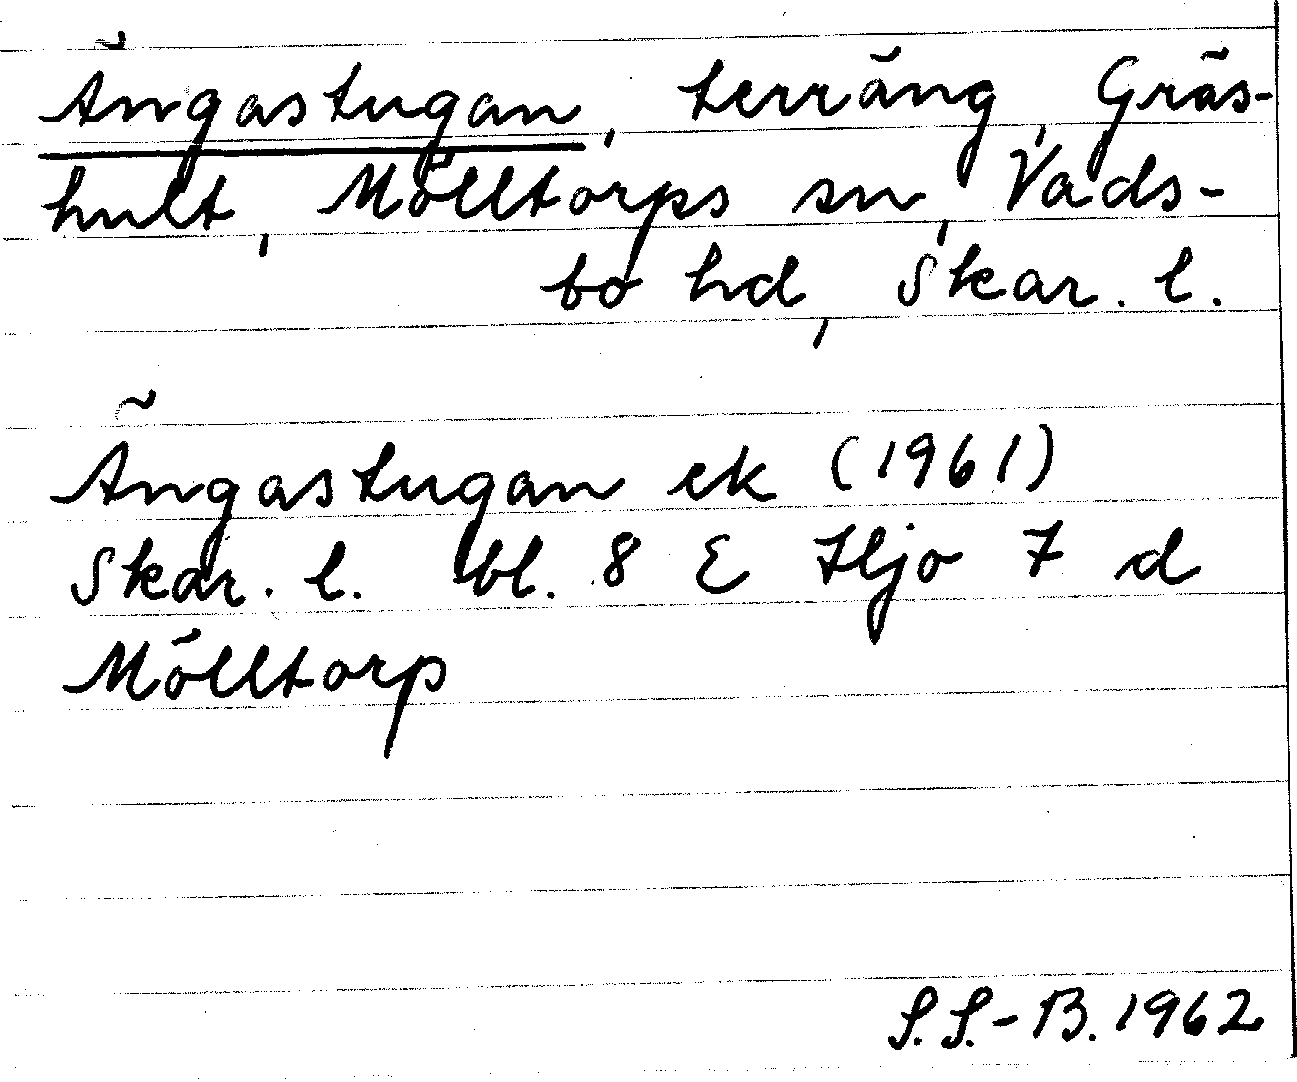 Ängastugan, terräng, Gräs-
hult, Mölltorps sn, Vads-
bo hd, Skar. l.
Ängastugan ek (1961)
Skar. l. bl. 8 E Hjo 7 d
Mölltorp
S.S.-B. 1962